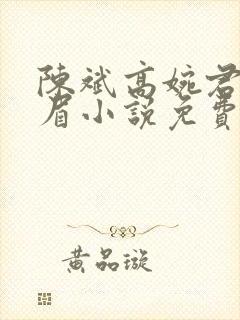 陳斌高婉君
眉小說免費
黃品璇